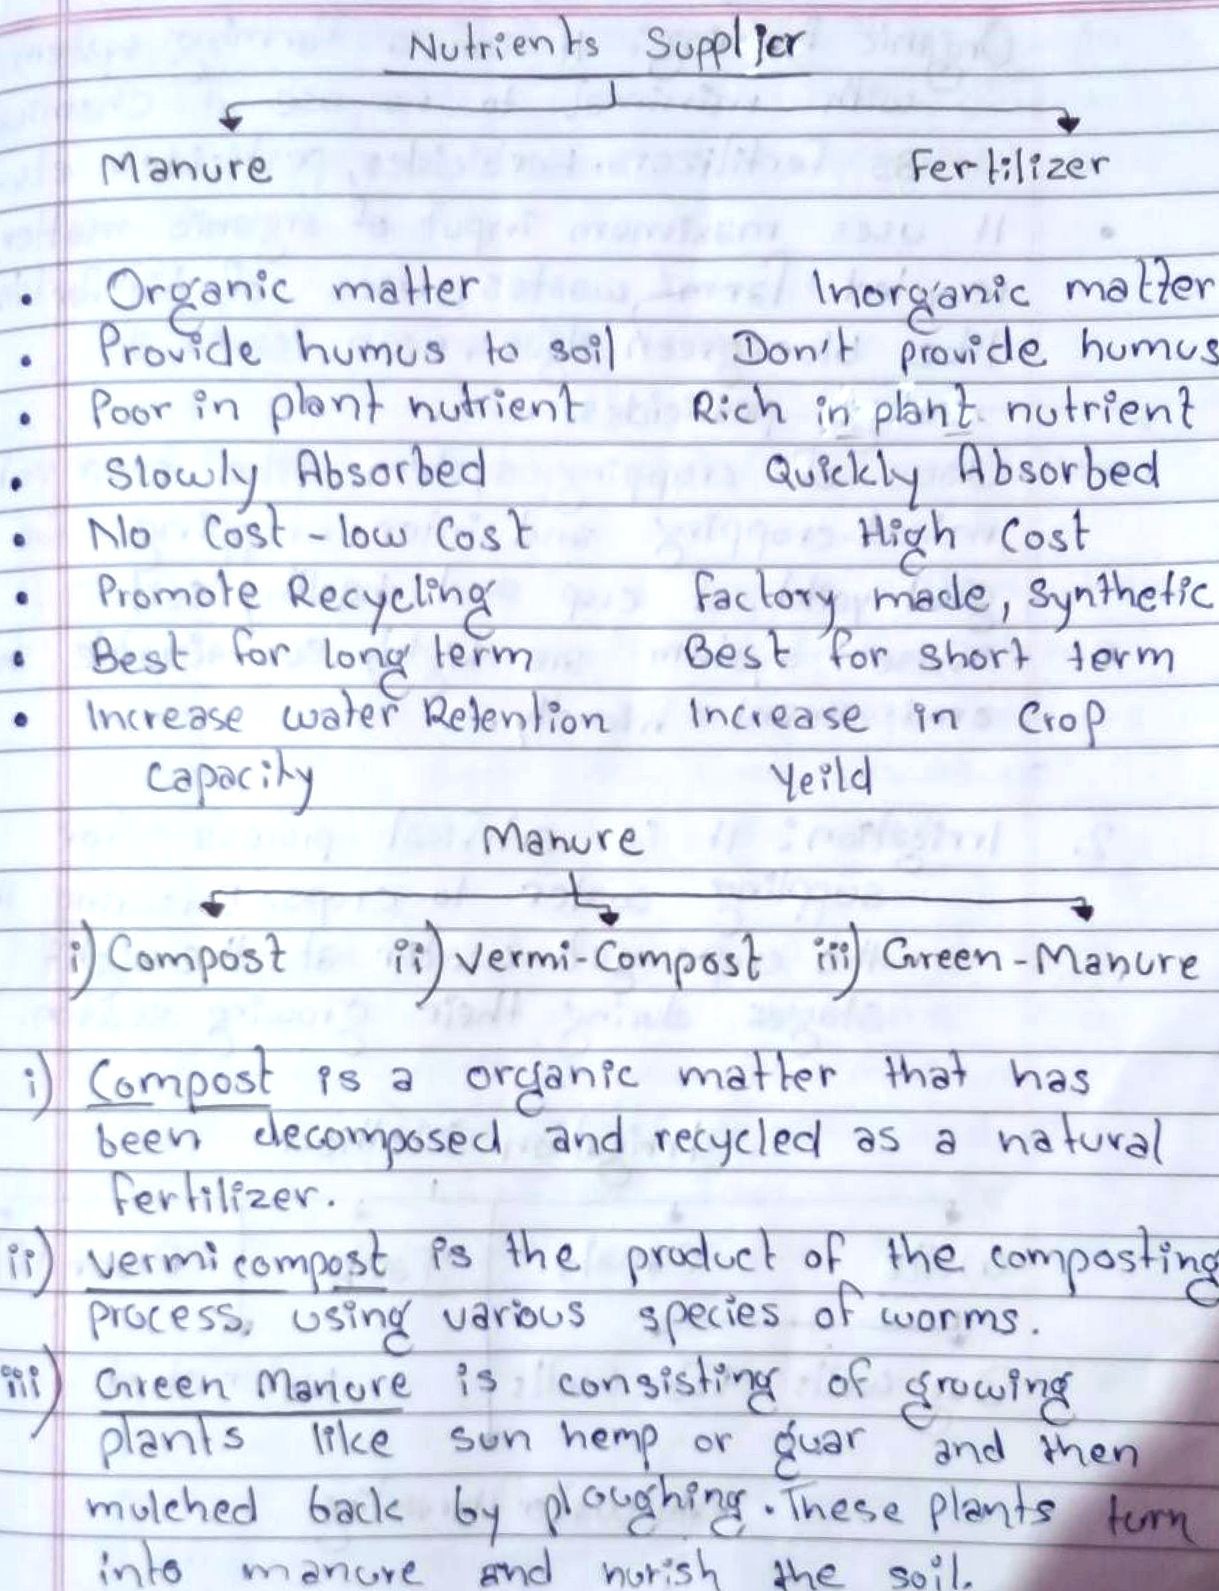 Nutrients Supplier
Manure Fertilizer
• Organic matter Inorganic matter
• Provide humus to soil Don't provide humus
• Poor in plant nutrient Rich in plant nutrient
• Slowly Absorbed Quickly Absorbed
• No Cost - low Cost High Cost
• Promote Recycling Factory made, Synthetic
• Best for long term Best for short term
• Increase water Retention Increase in Crop
Capacity Yeild
Manure
i) Compost ii) Vermi-Compost iii) Green-Manure
i) Compost is a organic matter that has
been decomposed and recycled as a natural
fertilizer.
ii) vermi compost is the product of the composting
process, using various species of worms.
iii) Green Manure is consisting of growing
plants like sun hemp or guar and then
mulched back by ploughing. These plants turn
into manure and nurish the soil.